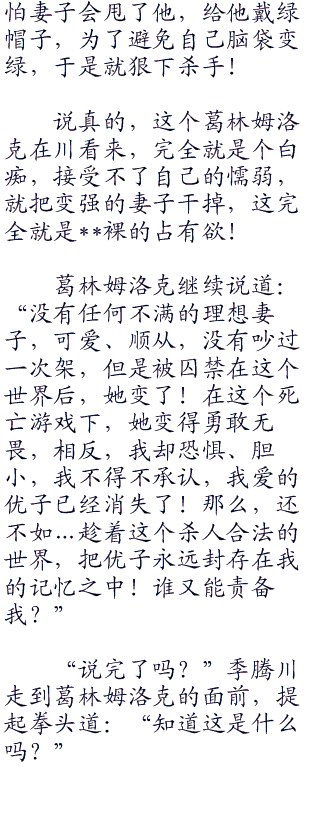 怕妻子会甩了他，给他戴绿
帽子，为了避免自己脑袋变
绿，于是就狠下杀手！
说真的，这个葛林姆洛
克在川看来，完全就是个白
痴，接受不了自己的懦弱，
就把变强的妻子干掉，这完
全就是**裸的占有欲！
葛林姆洛克继续说道：
“没有任何不满的理想妻
子，可爱、顺从，没有吵过
一次架，但是被囚禁在这个
世界后，她变了！在这个死
亡游戏下，她变得勇敢无
畏，相反，我却恐惧、胆
小，我不得不承认，我爱的
优子已经消失了！那么，还
不如…趁着这个杀人合法的
世界，把优子永远封存在我
的记忆之中！谁又能责备
我？”
“说完了吗？”季腾川
走到葛林姆洛克的面前，提
起拳头道：“知道这是什么
吗？”